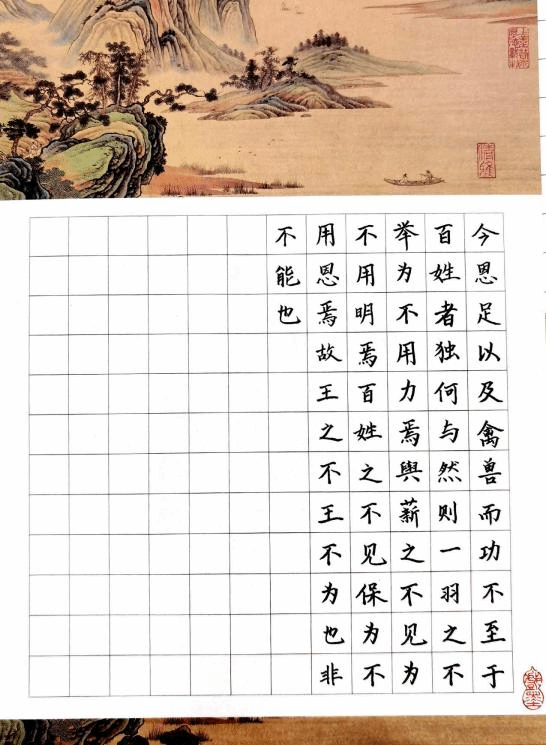 今恩足以及禽兽而功不至于
百姓者独何与然则一羽之不
举为不用力焉舆薪之不见为
不用明焉百姓之不见保为不
用恩焉故王之不王不为也非
不能也